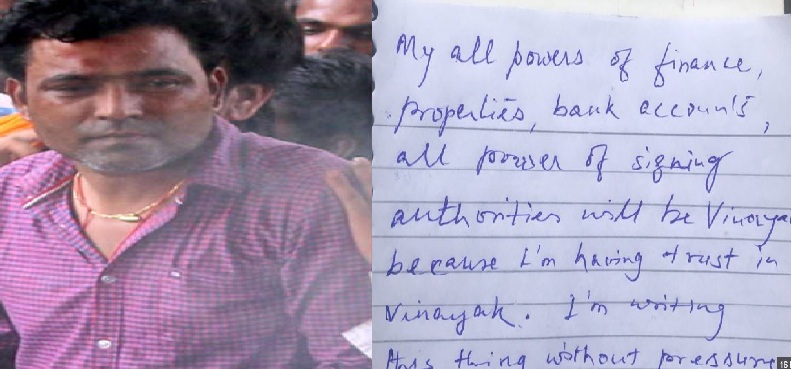 My all powers of finance,
properties, bank accounts,
all power of signing
authorities will be Vinaya
because I'm having trust in
Vinayak. I'm writing
this thing without pressure
16